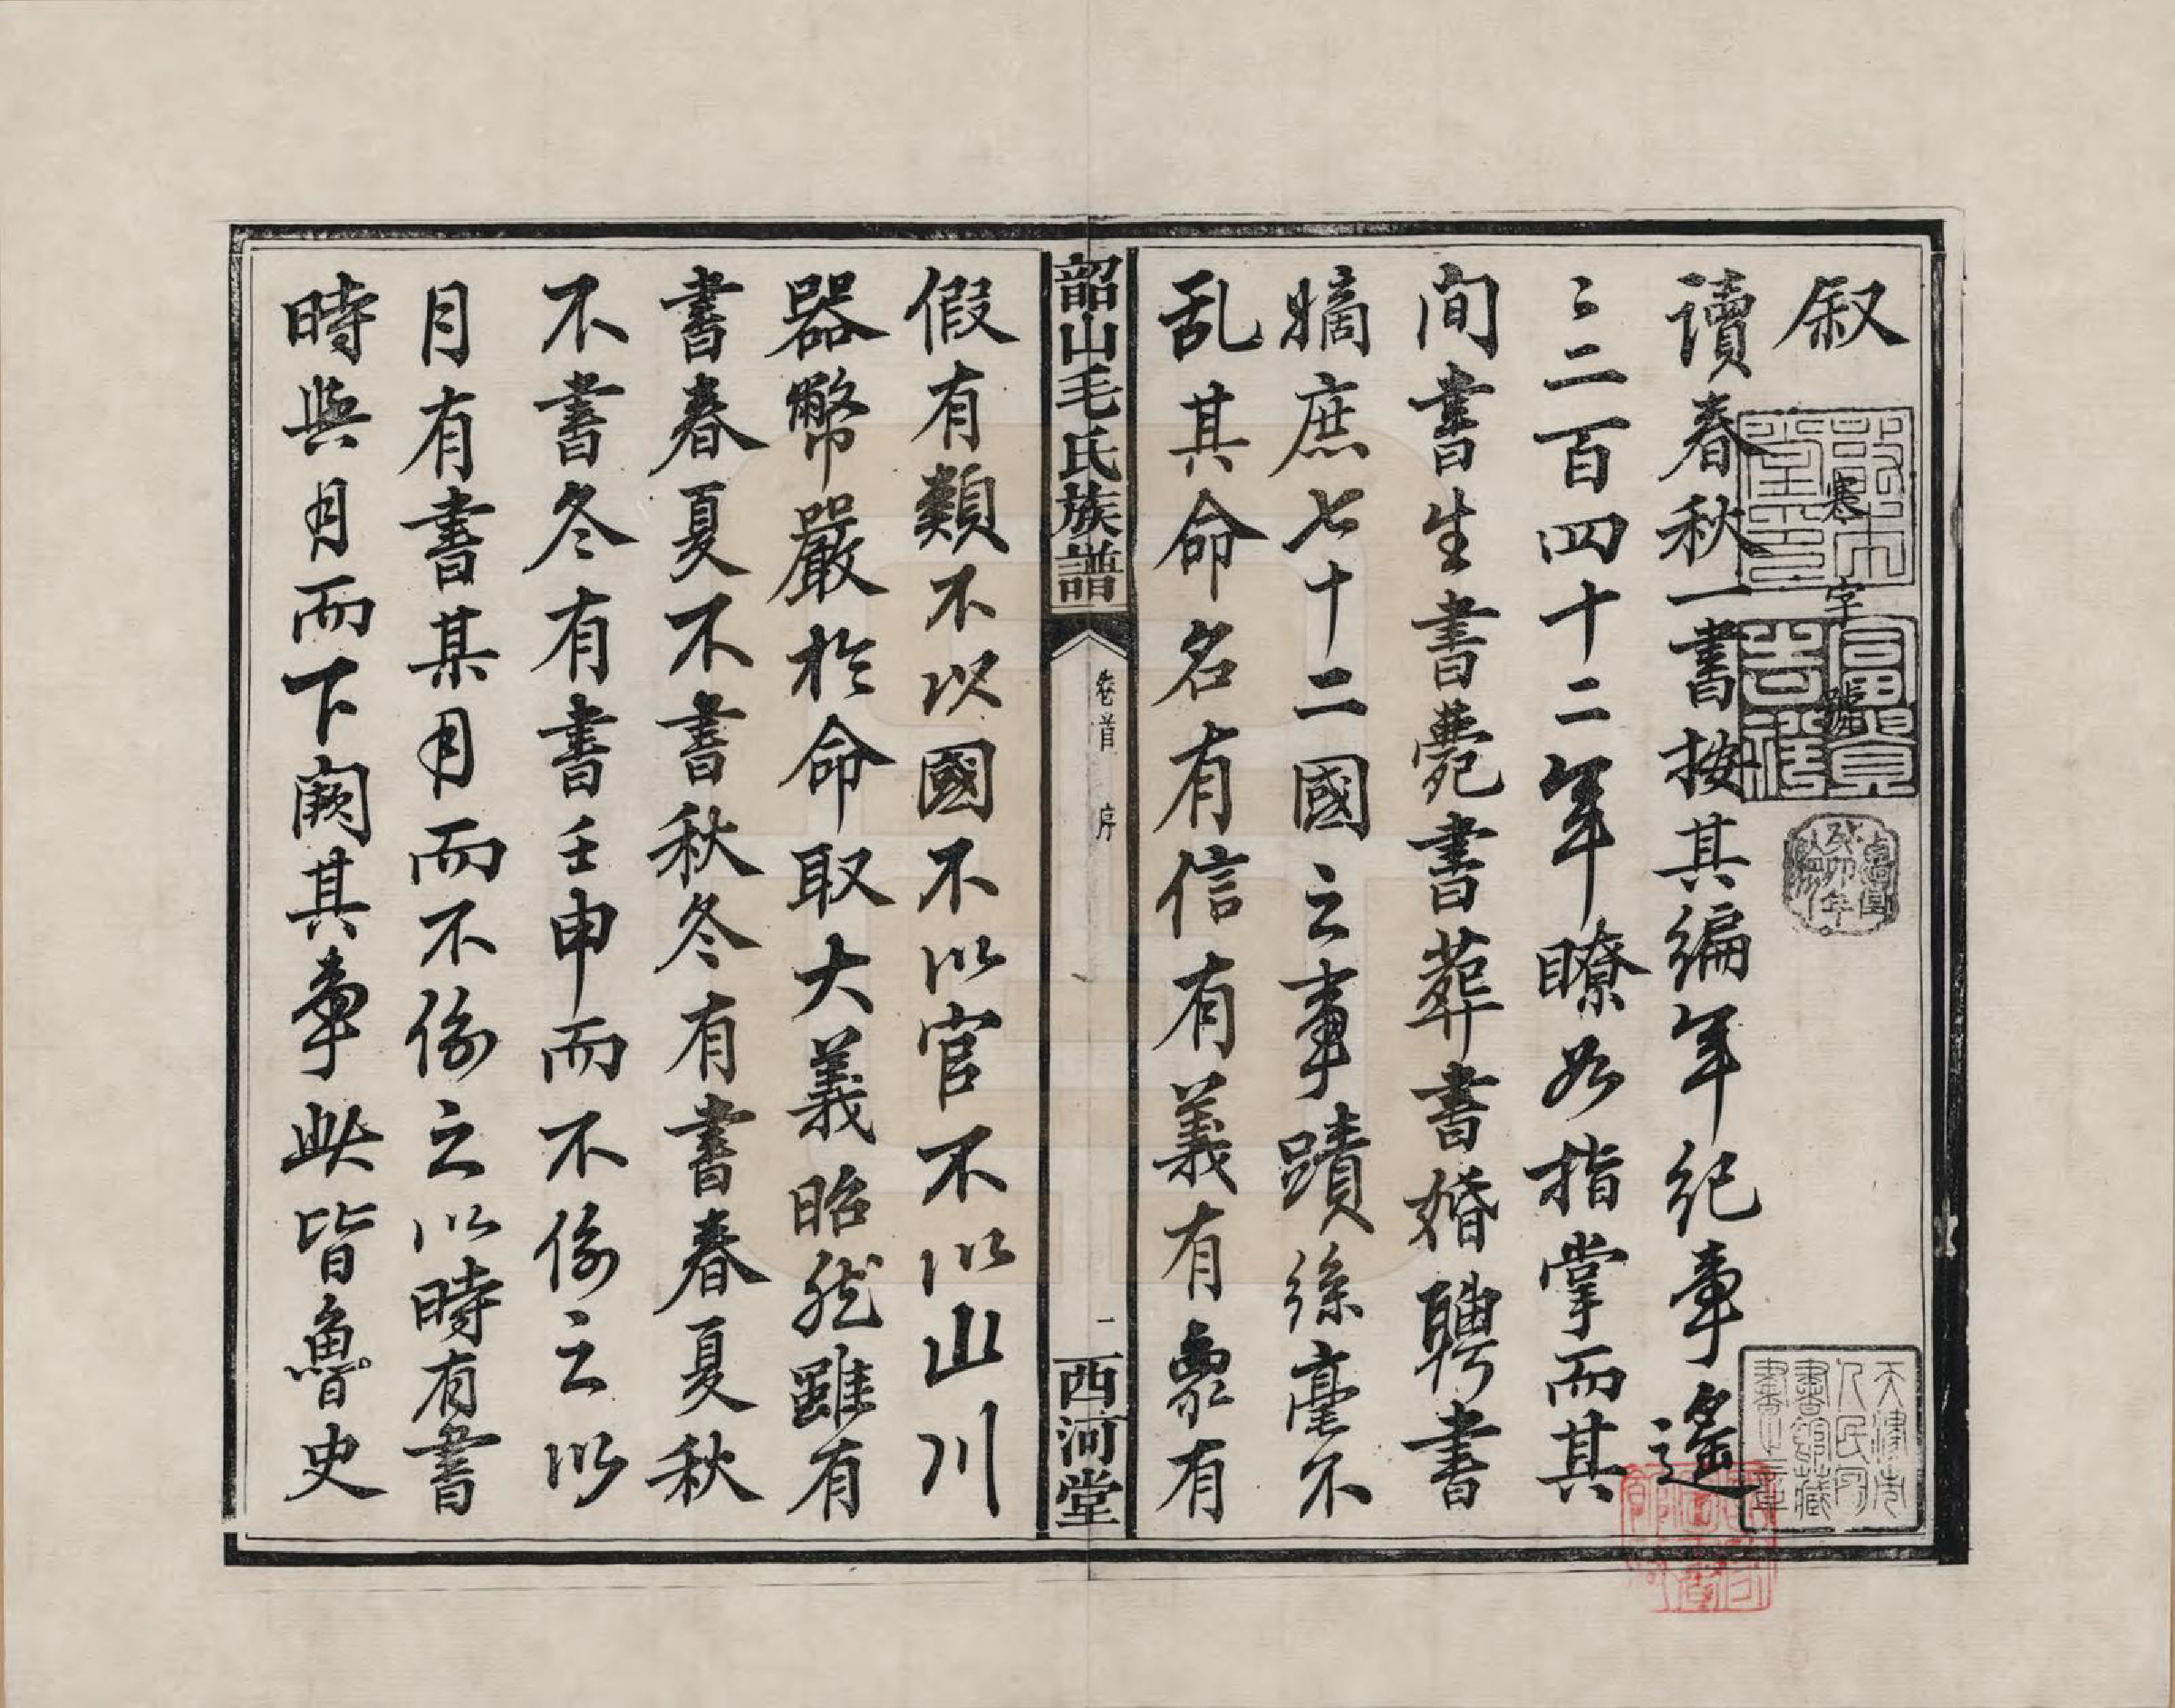 叙
寒字號
富貴吉祥
天津市
人民圖
書館藏
書之章
讀春秋一書按其編年紀事遙
〻二百四十二年瞭如指掌而其
间書生書薨書葬書婚聘書
嫡庶七十二國之事蹟絲毫不
乱其命名有信有義有象有
韶山毛氏族譜 卷首 序 一 西河堂
假有類不以國不以官不以山川
器幣嚴於命取大義昭然雖有
書春夏不書秋冬有書春夏秋
不書冬有書壬申而不係之以
月有書某月而不係之以時有書
時與月而下闕其事此皆魯史